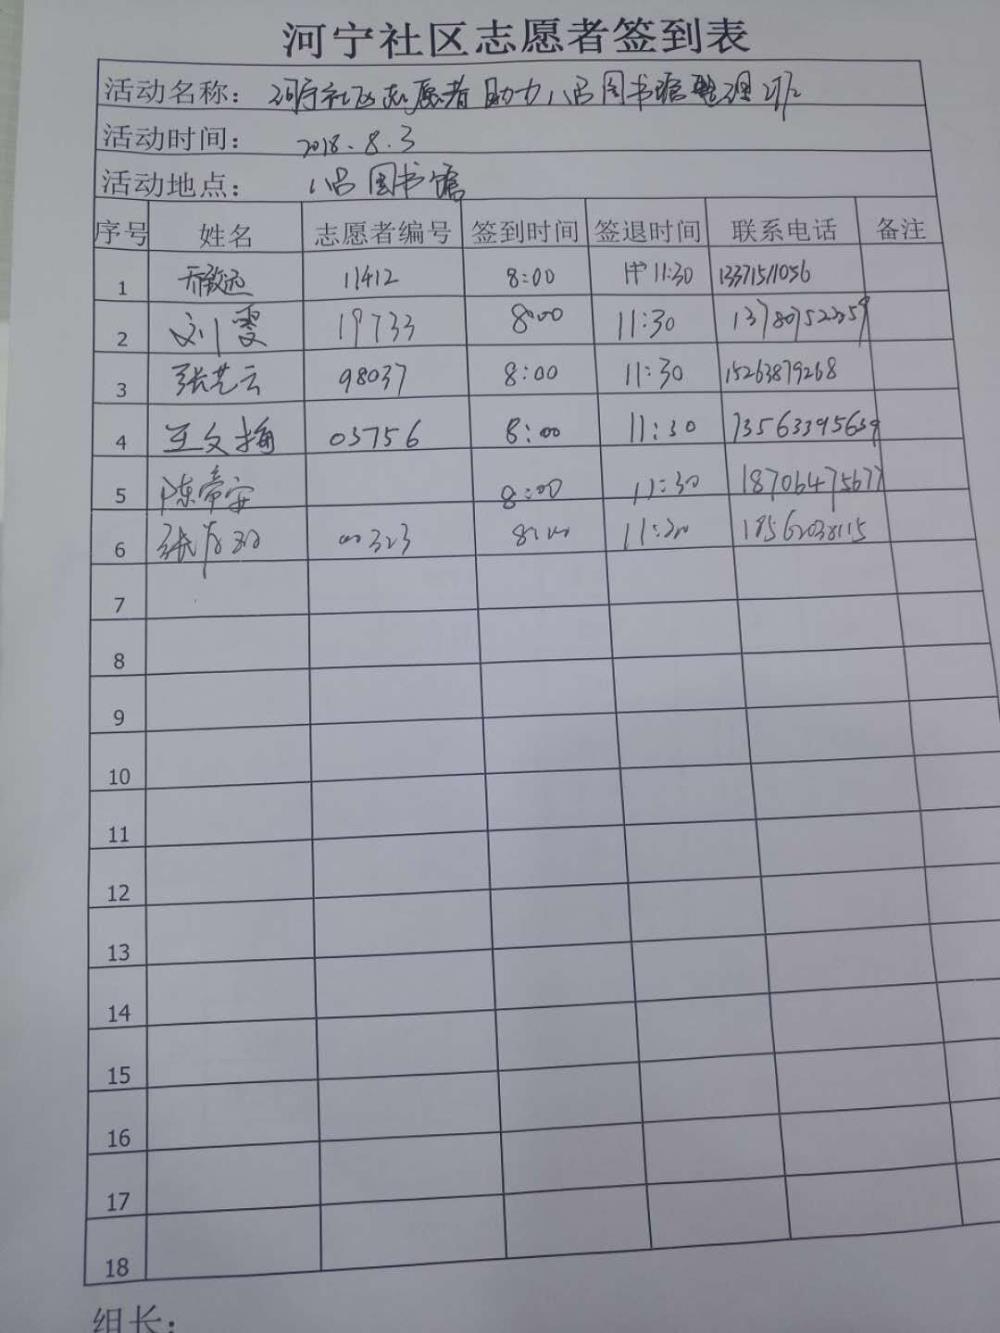 河宁社区志愿者签到表
活动名称: 河宁社区志愿者助力八吕图书馆整理
活动时间: 2018.8.3
活动地点: 八吕图书馆
序号 姓名 志愿者编号 签到时间 签退时间 联系电话 备注
1 11412 8:00 11:30 13371511056
2 刘雯 19733 8:00 11:30
3 张艺云 98037 8:00 11:30 15263879268
4 王文梅 03756 8:00 11:30 13563395639
5 8:00 11:30 18706475677
6 00323 8:00 11:30 18562038115
7
8
9
10
11
12
13
14
15
16
17
18
组长: